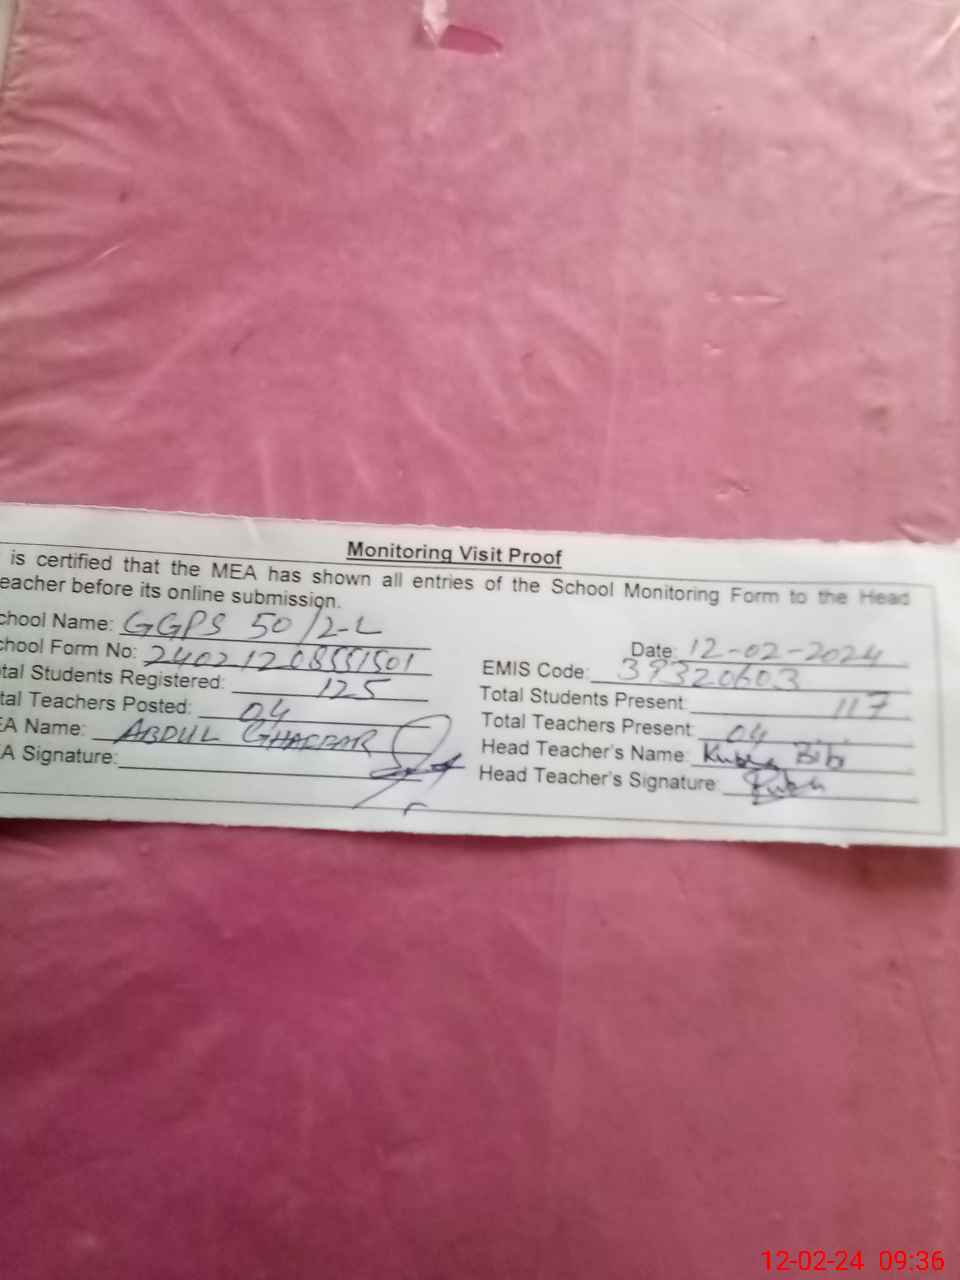 Monitoring Visit Proof
is certified that the MEA has shown all entries of the School Monitoring Form to the Head
eacher before its online submission.
chool Name: GGPS 50/2-L
Date: 12-02-2024
chool Form No:
EMIS Code: 39320603
tal Students Registered: 125
Total Students Present: 117
tal Teachers Posted: 04
Total Teachers Present: 04
EA Name: ABDUL GHAFFAR
Head Teacher's Name: Bibi
A Signature:
Head Teacher's Signature:
12-02-24 09:36